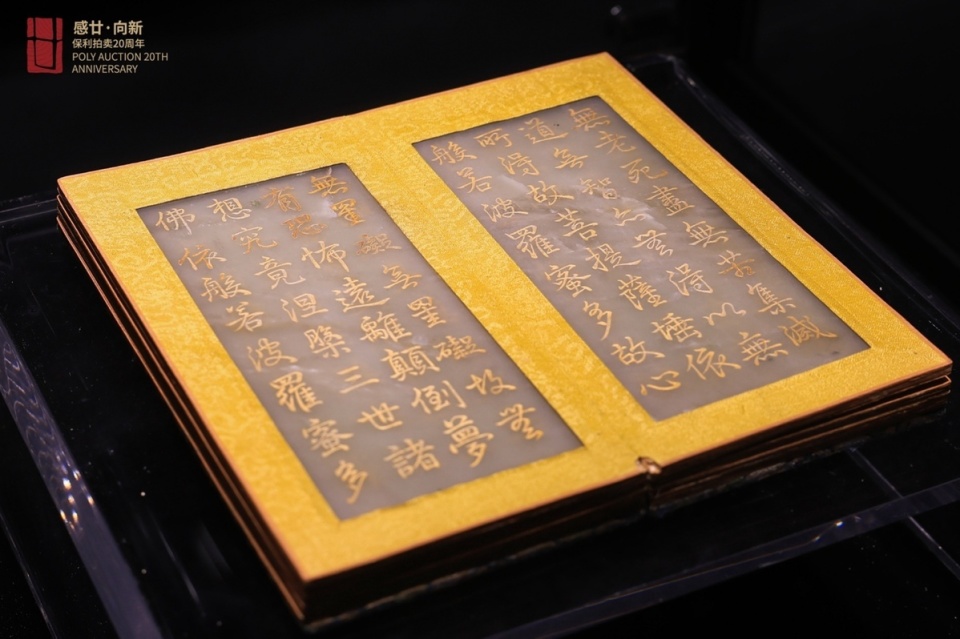 感廿·向新
保利拍卖20周年
POLY AUCTION 20TH
ANNIVERSARY
無老死盡無苦集滅
道无智亦無得以無
所得故菩提薩埵依
般若波羅蜜多故心
無罣礙无罣礙故無
有恐怖遠離顛倒夢
想究竟涅槃三世諸
佛依般若波羅蜜多